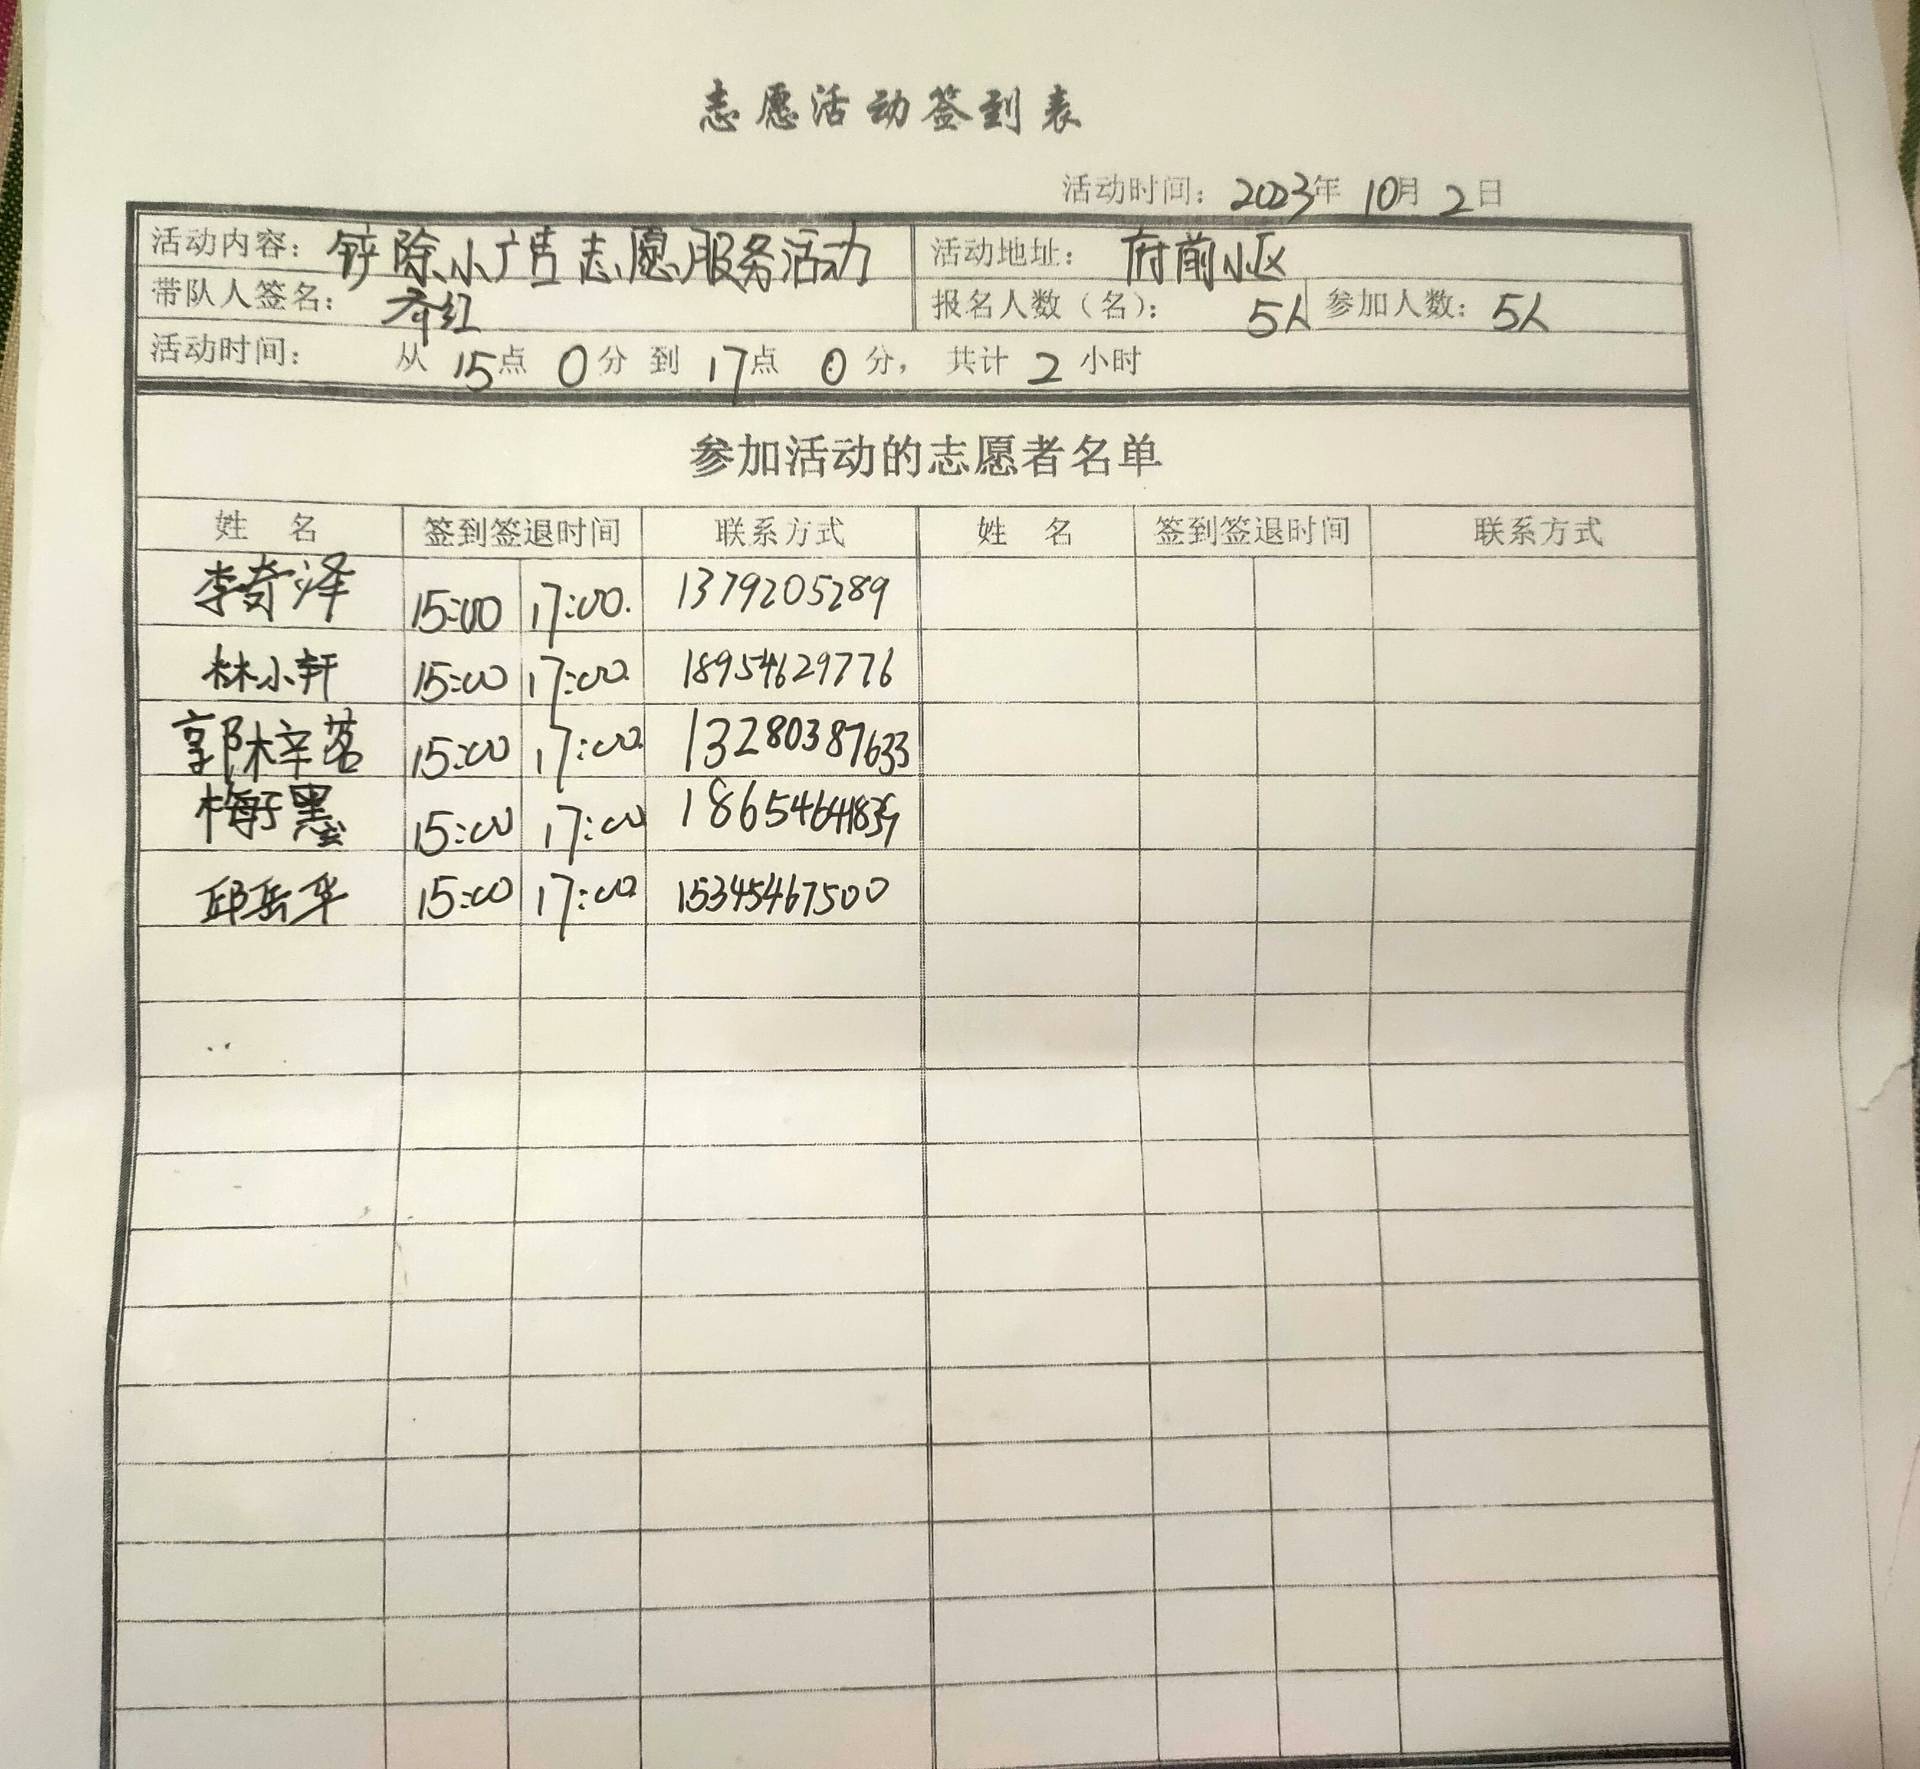 志愿活动签到表
活动时间：2023年 10月 2日
活动内容：铲除小广告志愿服务活动 活动地址：府前小区
带队人签名：乔红 报名人数（名）：5人 参加人数：5人
活动时间： 从 15点 0分 到 17点 0分， 共计 2 小时
参加活动的志愿者名单
姓 名 签到签退时间 联系方式 姓 名 签到签退时间 联系方式
李奇泽 15:00 17:00. 1379205289
林小轩 15:00 17:00. 18954629776
郭梓茗 15:00 17:00. 13280387633
梅子墨 15:00 17:00 1865464183
邱岳华 15:00 17:00 15345467500